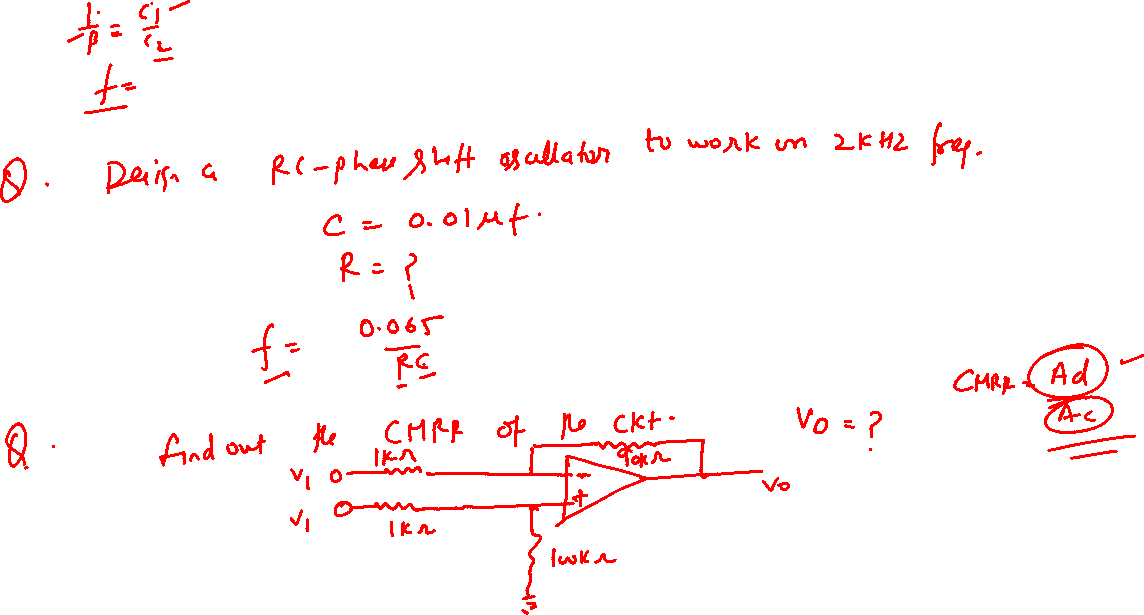 1/β = C1/C2
f =
Q. Design a RC-phase shift oscillator to work on 2KHZ freq.
C = 0.01μf.
R = ?
f = 0.065/RC
CMRR = Ad/Ac
Q. find out the CMRR of the CKt. V0 = ?
1KΩ
90KΩ
V1
-
V0
+
V1
1KΩ
100KΩ